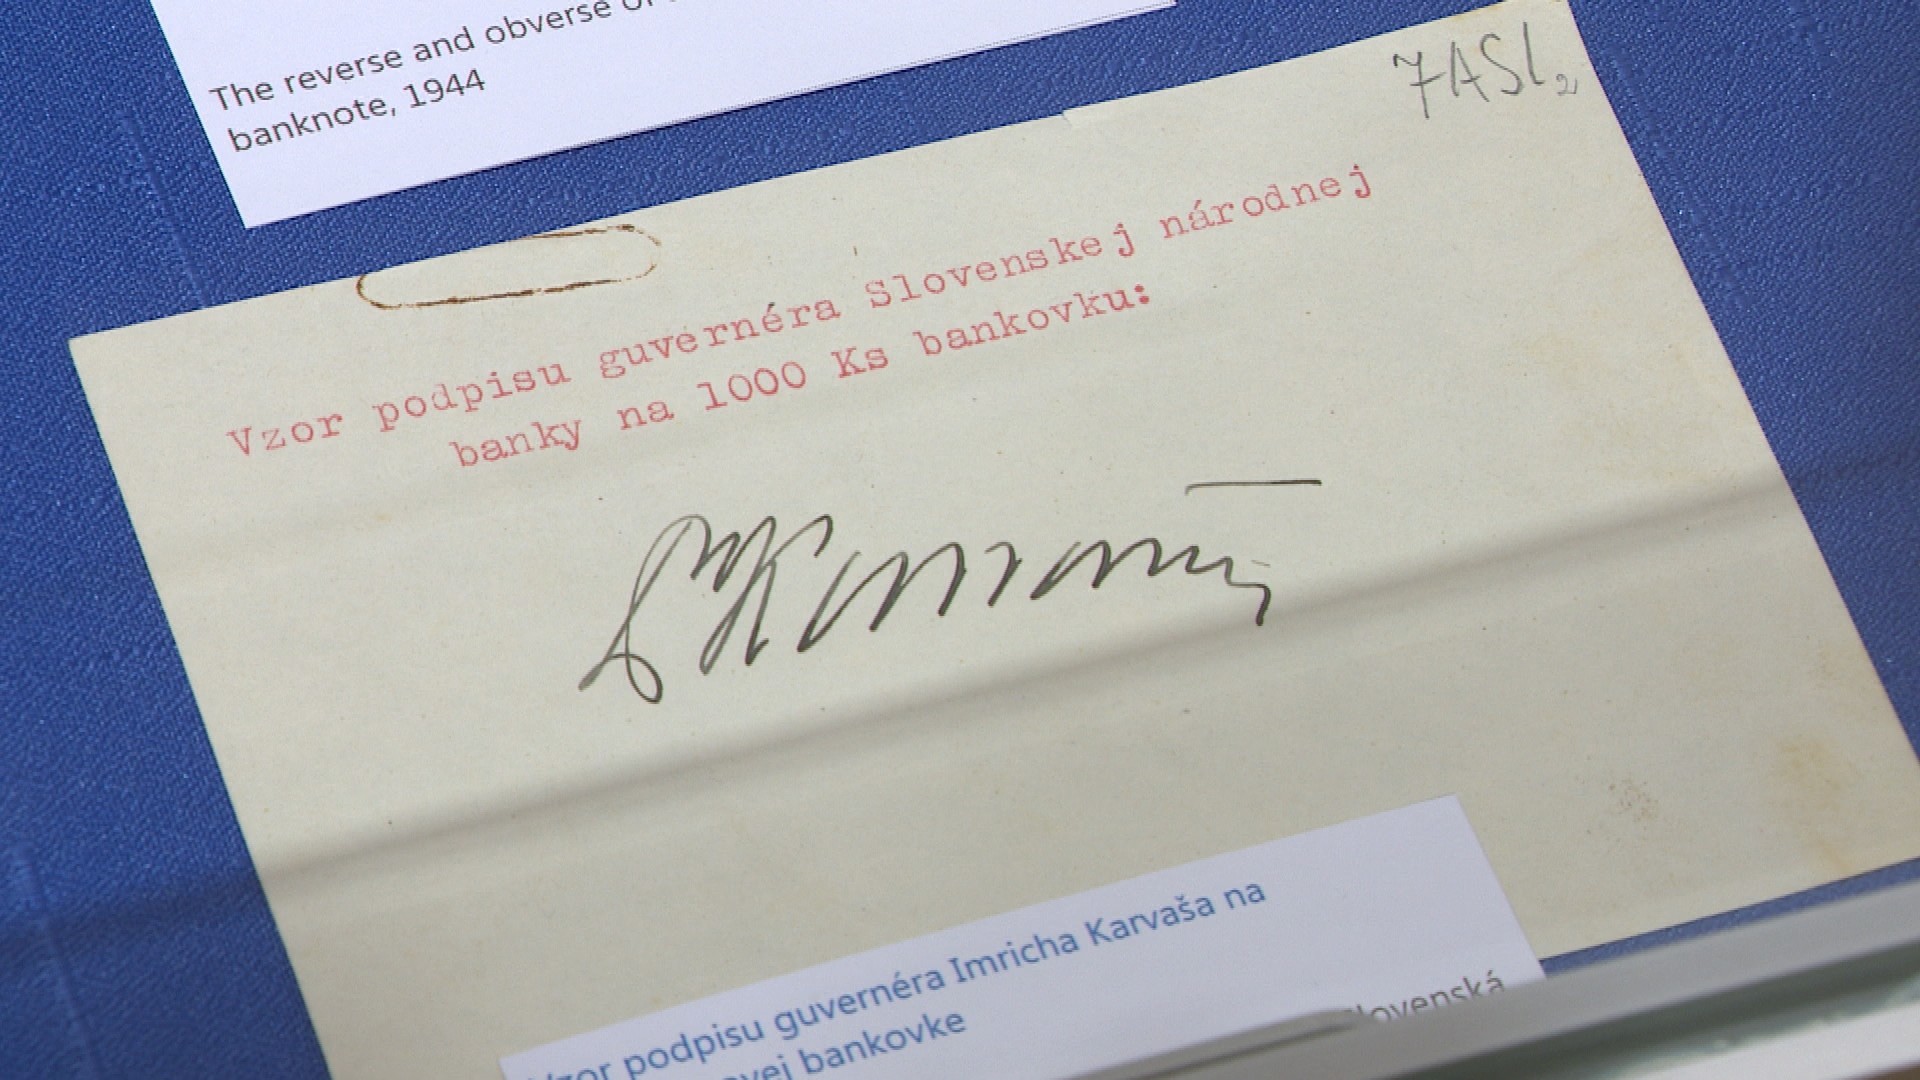 The reverse and obverse of
banknote, 1944
7ASl2
Vzor podpisu guvernéra Slovenskej národnej
banky na 1000 Ks bankovku:
Vzor podpisu guvernéra Imricha Karvaša na
bankovke
Slovenská